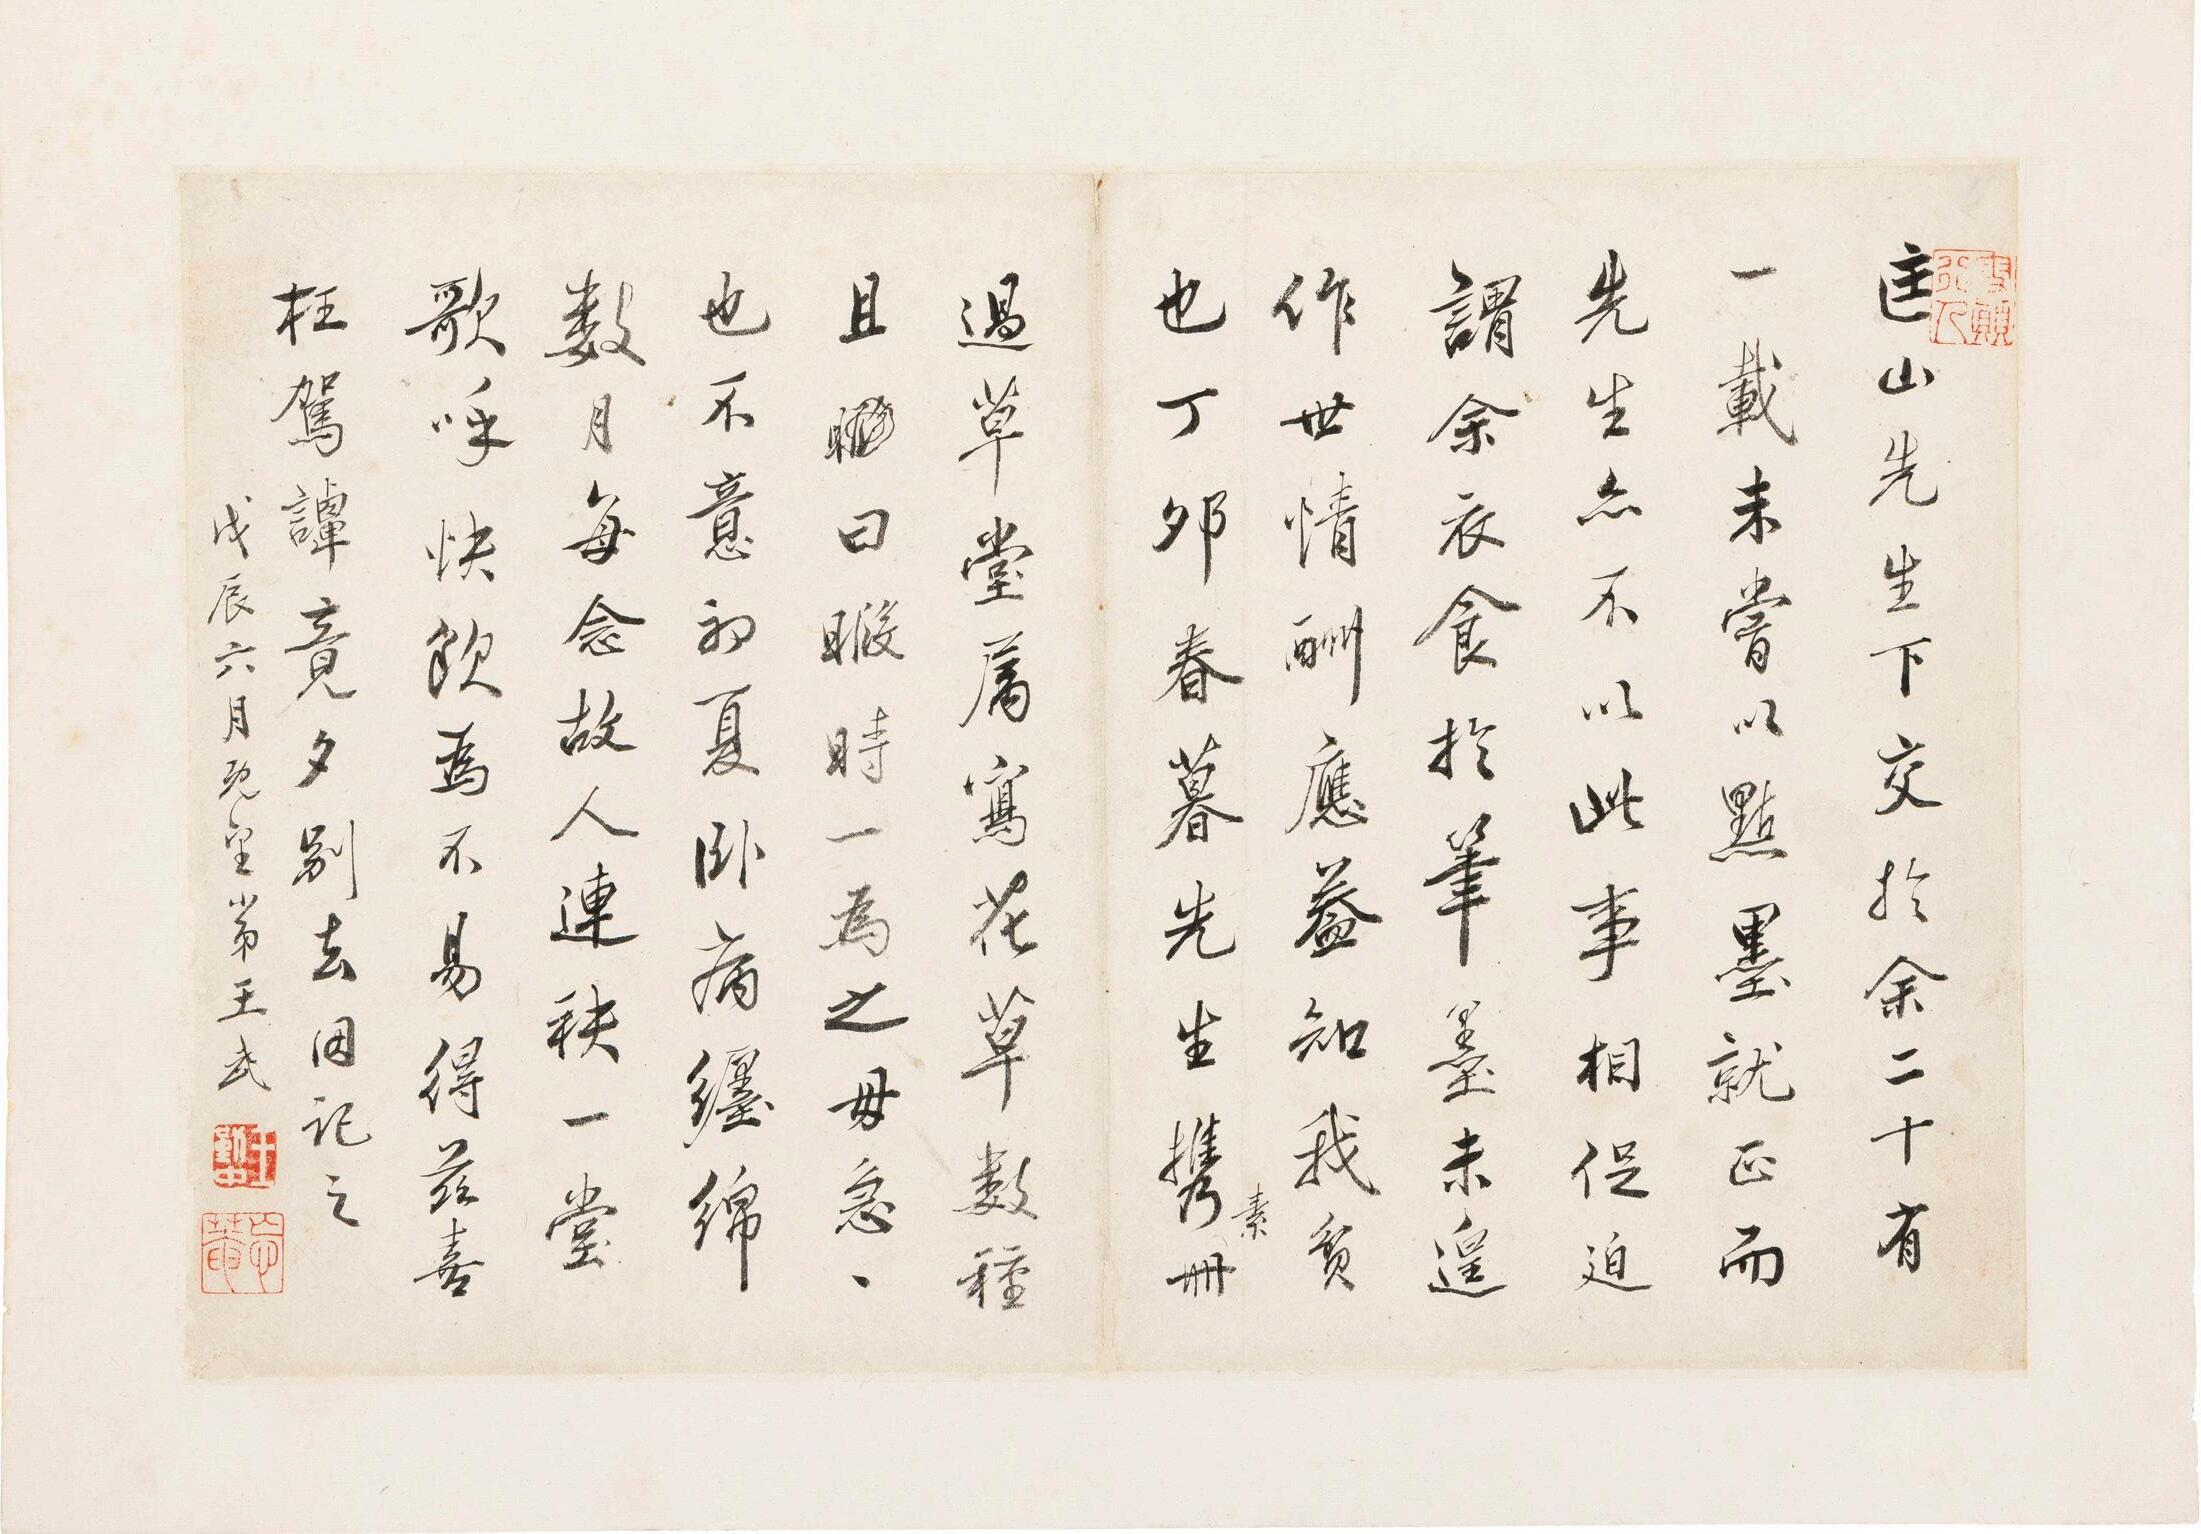 匡山先生下交於余二十有
一載未嘗以點墨就正而
先生亦不以此事相促迫
謂余衣食於筆墨未遑
作世情酬應益知我貧
也丁卯春暮先生攜素冊
過草堂屬寫花草數種
且曰暇時一為之毋急、
也不意初夏臥病纏綿
數月每念故人連袂一堂
歌呼快飲為不易得茲喜
枉駕譚竟夕別去因記之
戊辰六月既望弟王武
王武
忘菴